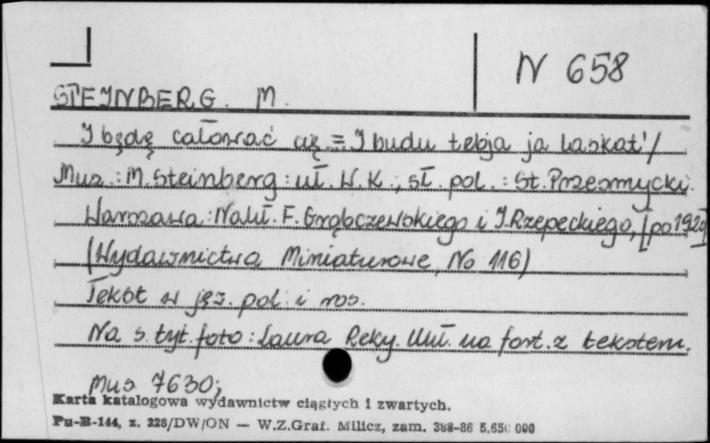 N 658
STEINBERG. M.
I będę całować cię = I budu tebja ja laskat'/
Muz.: M. Steinberg: uł. W.K.; sł. pol.: St. Przesmycki.
Warszawa: Nakł. F. Grąbczewskiego i J. Rzepeckiego, [po 1920]
(Wydawnictwa Miniaturowe, No 116)
Tekst w jęz. pol. i ros.
Na s. tyt. foto: Laura Reky. Utw. na fort. z tekstem.
Mus 7630;
Karta katalogowa wydawnictw ciągłych i zwartych.
Pu-B-144, z. 228/DW/ON — W.Z.Graf. Milicz, zam. 388-86 5.650 000